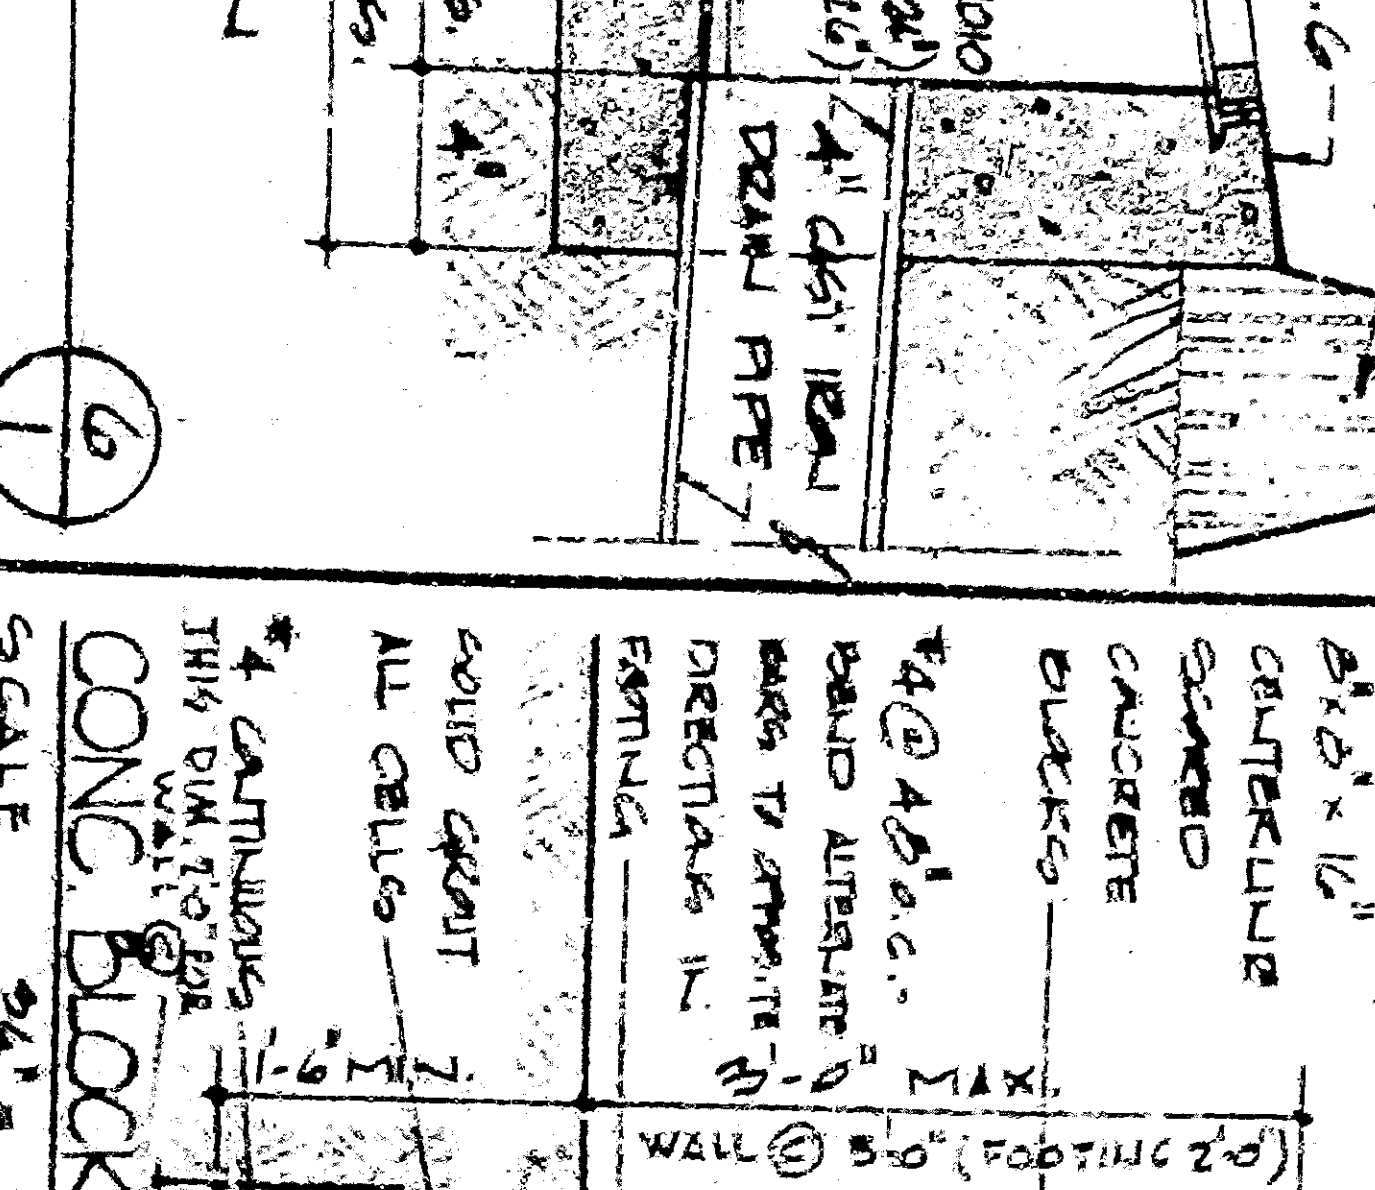 4" CAST IRON
DRAIN PIPE
4"
6
1
8" x 8" x 16"
CENTERLINE
SCORED
CONCRETE
BLOCKS
#4 @ 48" O.C.,
BEND ALTERNATE
BARS TO OPPOSITE
DIRECTIONS IN
FOOTING
SOLID GROUT
ALL CELLS
#4 CONTINUOUS
THIS DIM. 2'-0" FOR
WALL @
CONC. BLOCK
SCALE
1'-6" MIN.
3'-0" MAX.
WALL @ 5'-0" (FOOTING 2'-0")